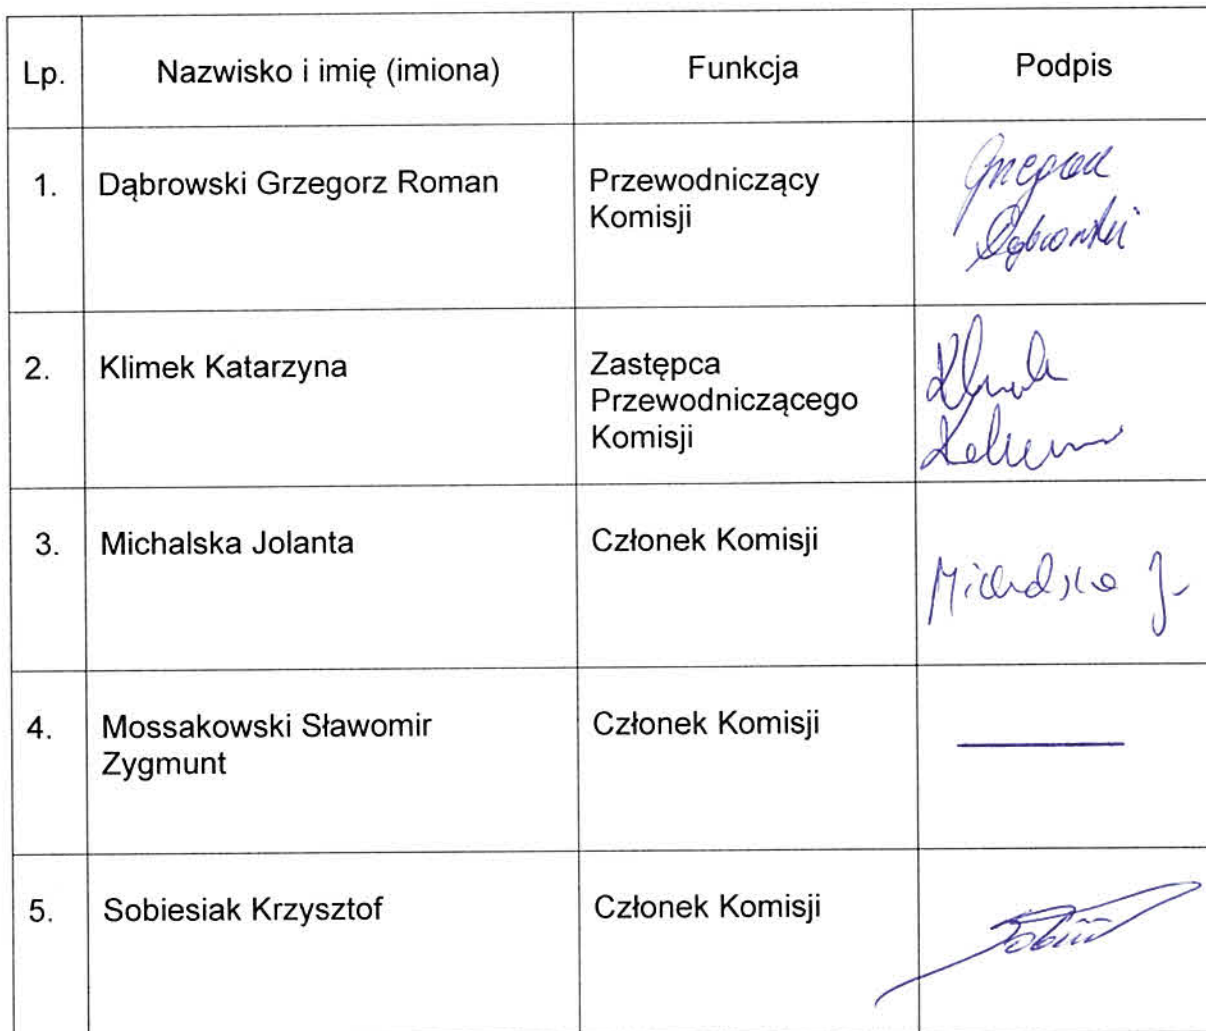 Lp. Nazwisko i imię (imiona) Funkcja Podpis
1. Dąbrowski Grzegorz Roman Przewodniczący
Komisji
Grzegorz
Dąbrowski
2. Klimek Katarzyna Zastępca
Przewodniczącego
Komisji
3. Michalska Jolanta Członek Komisji
Michalska J.
4. Mossakowski Sławomir Członek Komisji
Zygmunt
5. Sobiesiak Krzysztof Członek Komisji